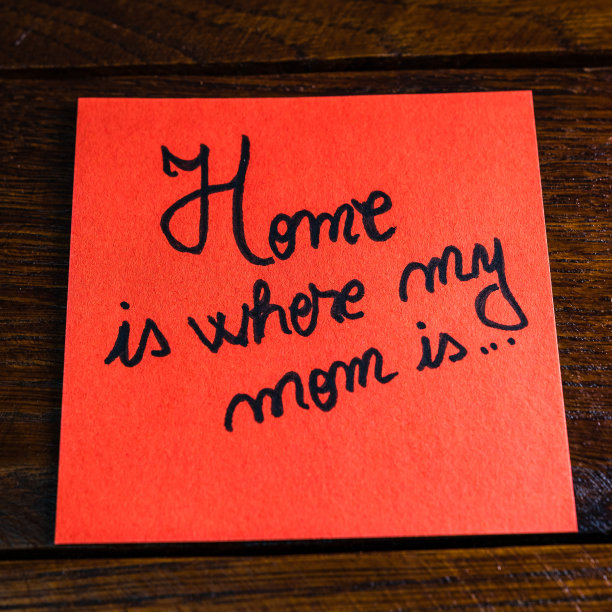 Home
is where my
mom is...